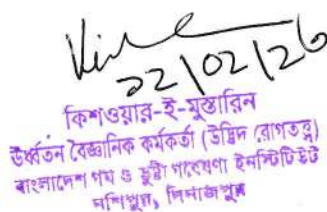 22/02/26
কিশওয়ার-ই-মুস্তারিন
ঊর্ধ্বতন বৈজ্ঞানিক কর্মকর্তা (উদ্ভিদ রোগতত্ত্ব)
বাংলাদেশ গম ও ভুট্টা গবেষণা ইনস্টিটিউট
নশিপুর, দিনাজপুর